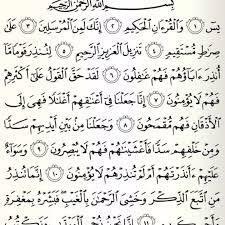 بِسْمِ ٱللَّهِ ٱلرَّحْمَٰنِ ٱلرَّحِيمِ
يسٓ ١ وَٱلْقُرْءَانِ ٱلْحَكِيمِ ٢ إِنَّكَ لَمِنَ ٱلْمُرْسَلِينَ ٣ عَلَىٰ
صِرَٰطٍ مُّسْتَقِيمٍ ٤ تَنزِيلَ ٱلْعَزِيزِ ٱلرَّحِيمِ ٥ لِتُنذِرَ قَوْمًا مَّآ
أُنذِرَ ءَابَآؤُهُمْ فَهُمْ غَٰفِلُونَ ٦ لَقَدْ حَقَّ ٱلْقَوْلُ عَلَىٰٓ أَكْثَرِهِمْ
فَهُمْ لَا يُؤْمِنُونَ ٧ إِنَّا جَعَلْنَا فِىٓ أَعْنَٰقِهِمْ أَغْلَٰلًا فَهِىَ إِلَى
ٱلْأَذْقَانِ فَهُم مُّقْمَحُونَ ٨ وَجَعَلْنَا مِنۢ بَيْنِ أَيْدِيهِمْ سَدًّا
وَمِنْ خَلْفِهِمْ سَدًّا فَأَغْشَيْنَٰهُمْ فَهُمْ لَا يُبْصِرُونَ ٩ وَسَوَآءٌ
عَلَيْهِمْ ءَأَنذَرْتَهُمْ أَمْ لَمْ تُنذِرْهُمْ لَا يُؤْمِنُونَ ١٠ إِنَّمَا تُنذِرُ
مَنِ ٱتَّبَعَ ٱلذِّكْرَ وَخَشِىَ ٱلرَّحْمَٰنَ بِٱلْغَيْبِ فَبَشِّرْهُ بِمَغْفِرَةٍ